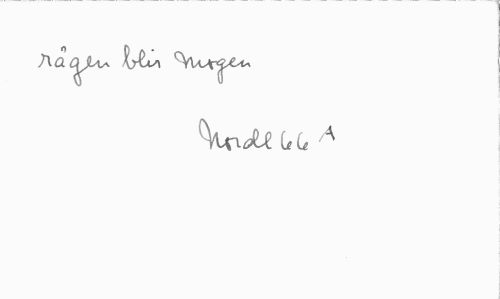 rågen blir mogen
Nordl 66 A